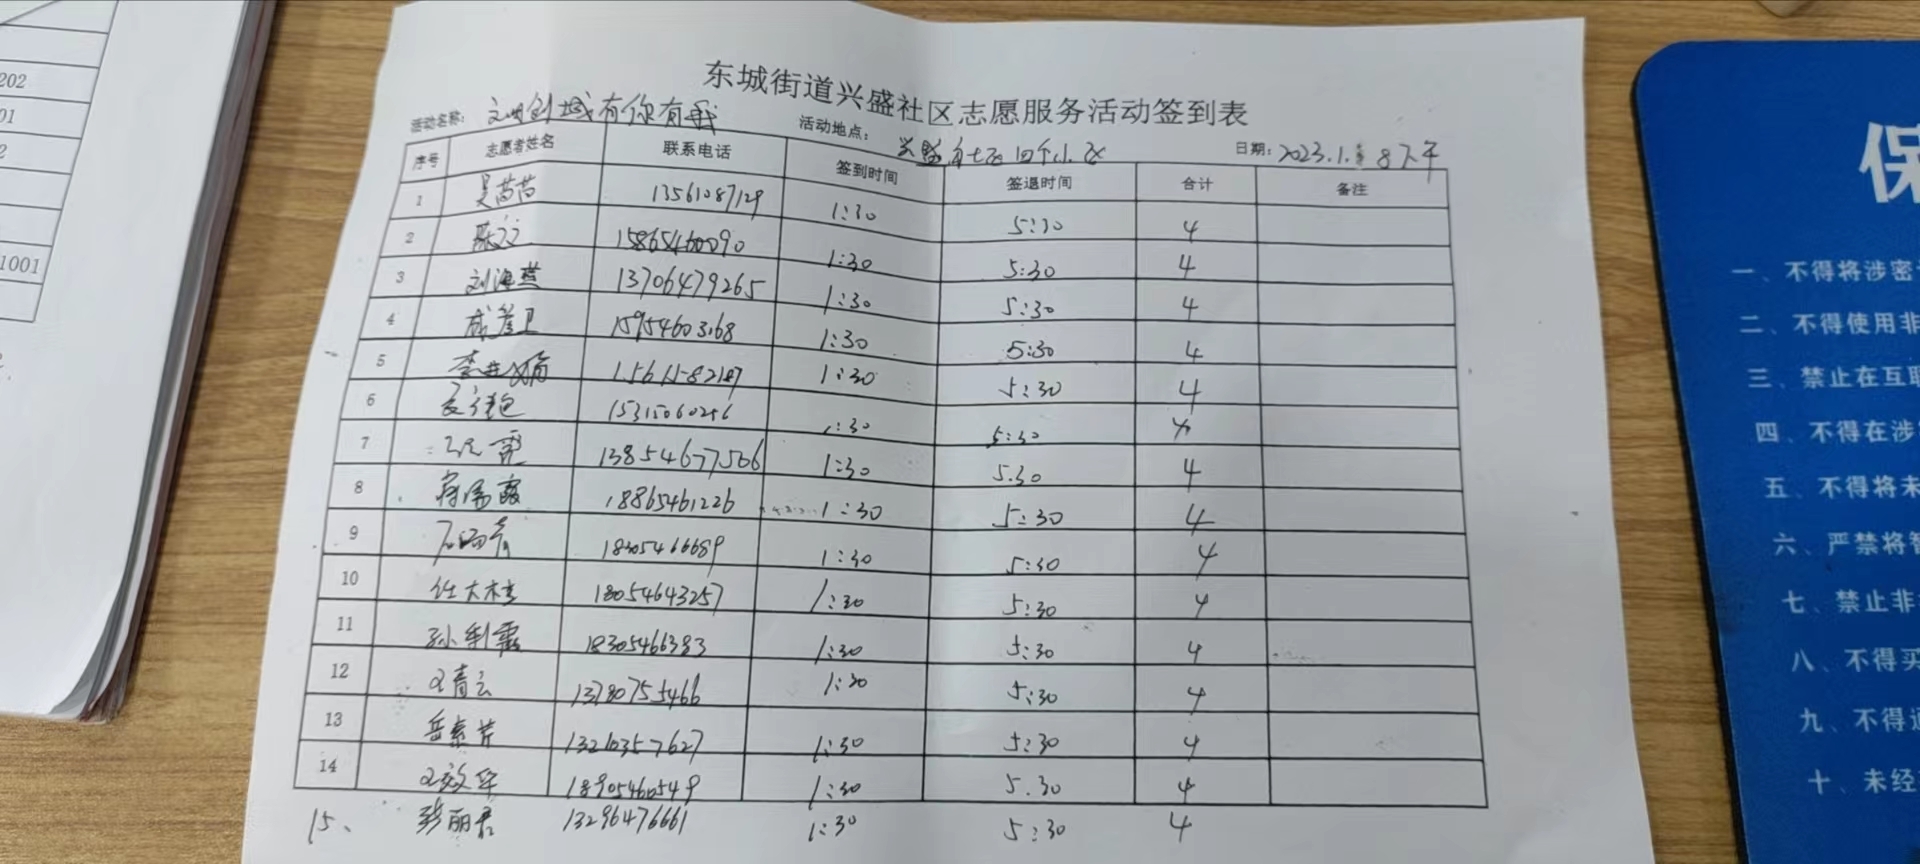 202
01
2
1001
东城街道兴盛社区志愿服务活动签到表
活动名称: 文明创城有你有我 活动地点: 兴盛社区四个小区 日期: 2023.1.8下午
序号 志愿者姓名 联系电话 签到时间 签退时间 合计 备注
1 吴茜茜 13561087129 1:30 5:30 4
2 1:30 5:30 4
3 刘海燕 13706479265 1:30 5:30 4
4 15954603168 1:30 5:30 4
5 1:30 5:30 4
6 :30 5:30 4
7 13854677506 1:30 5.30 4
8 18865461226 1:30 5:30 4
9 18305466689 1:30 5:30 4
10 任大林 18054643257 1:30 5:30 4
11 孙利霞 18305466383 1:30 5:30 4
12 王青云 13780755466 1:30 5:30 4
13 岳素芹 13210357627 1:30 5:30 4
14 王效华 18905460549 1:30 5.30 4
15、 丽君 13296476661 1:30 5:30 4
保
一、不得将涉密
二、不得使用非
三、禁止在互联
四、不得在涉
五、不得将未
六、严禁将智
七、禁止非
八、不得买
九、不得
十、未经